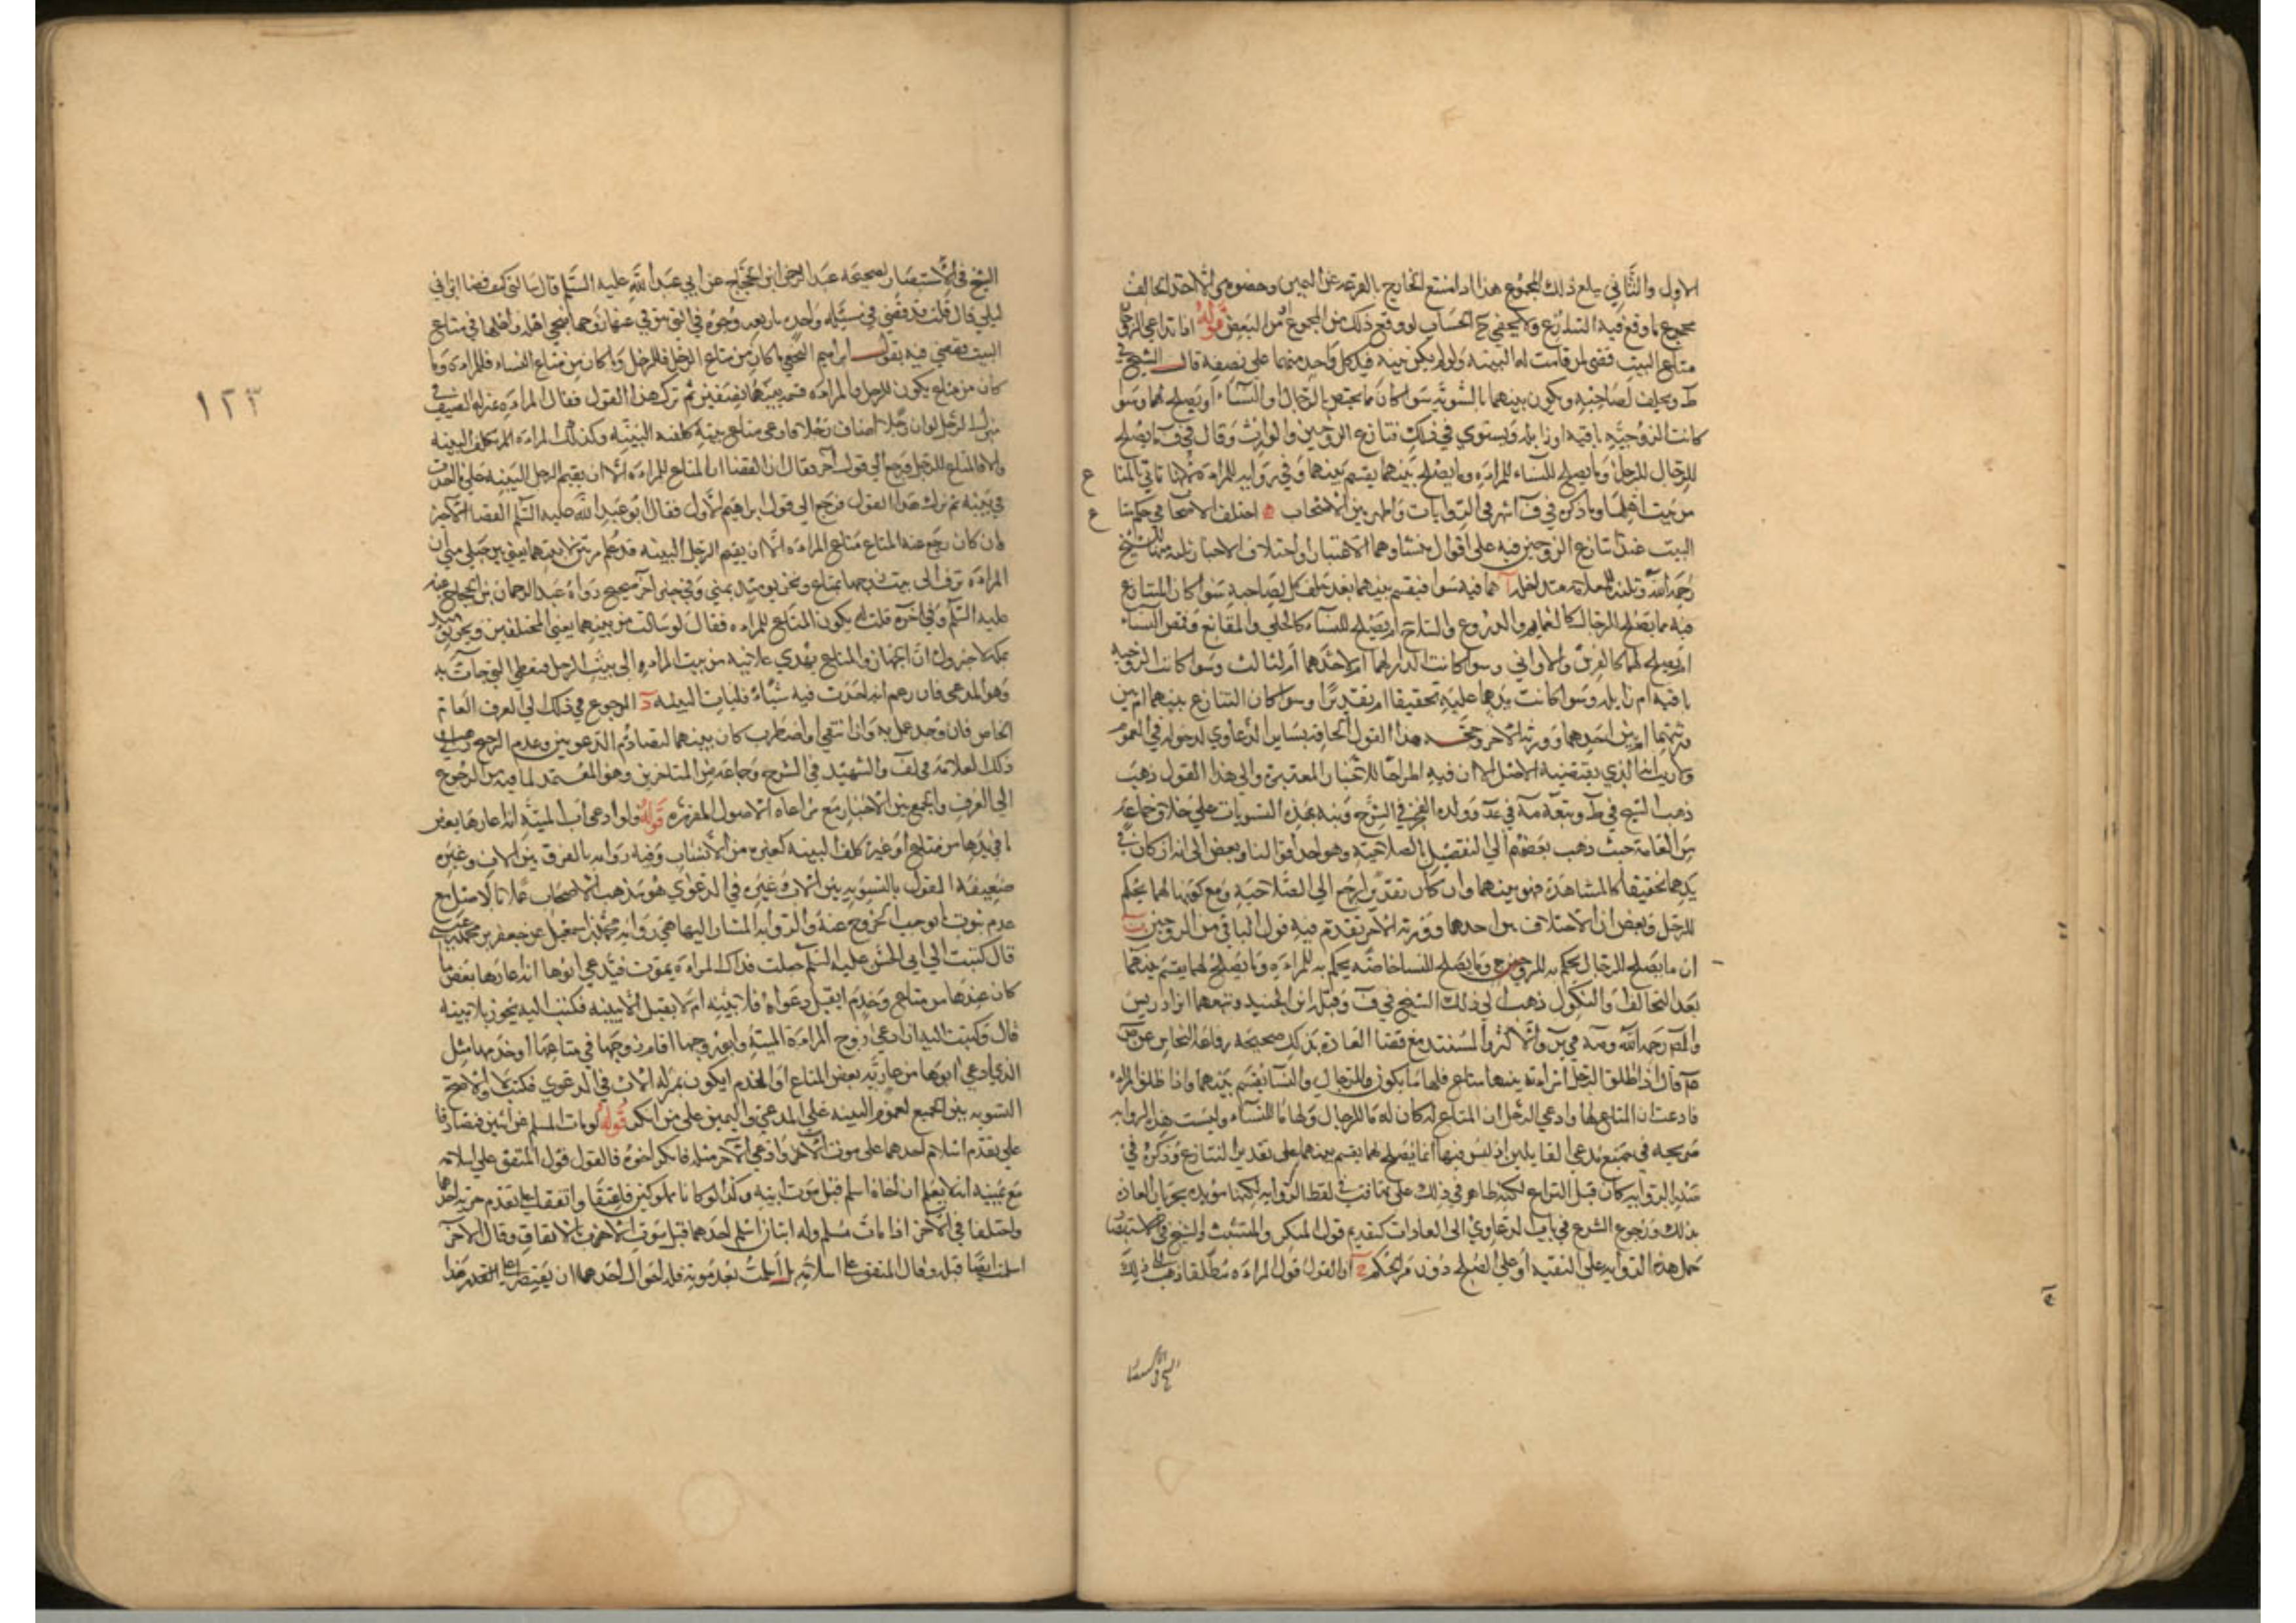 الاول والثاني يبلغ ذلك المجموع هذا اذا امتنع الخارج بالقرعة عن اليمين وحضوم الاخذ التحالف
مجموع ما وقع فيه التنازع ولا يخفى ح الحساب لو وقع ذلك من المجموع او من البعض قوله اذا تداعى الزوجان
متاع البيت قضى لمن قامت له البينة ولو لم يكن بينة فيد كل واحد منهما على نصفه قال الشيخ في
ط ويحلف لصاحبه ويكون بينهما بالسوية سواء كان ما يختص بالرجال او النساء او يصلح لهما وسوا
كانت الزوجية باقية او زايلة ويستوي في ذلك تنازع الزوجين والوارث وقال في ف ما يصلح
للرجال للرجل وما يصلح للنساء للمراءة وما يصلح بينهما يقسم بينهما وفي رواية للمراءة لانها تاتي بالمتا
من بيت اهلها وما ذكره في ف اشهر في الروايات واظهر بين الاصحاب اختلف الاصحاب في حكم متا
البيت عند تنازع الزوجين فيه على اقوال منشاوها الاعتبار واختلاف الاخبار الشيخ
رحمه الله هما فيه سوا فيقسم بينهما بعد حلف كل لصاحبه سوا كان المتنازع
فيه مما يصلح للرجال كالعمايم والدروع والسلاح ام يصلح للنساء كالحلي والمقانع وقمص النساء
ام يصلح لهما كالفرش والاواني وسوا كانت الدار لهما ام لاحدهما ام لثالث وسوا كانت الزوجية
باقية ام زايلة وسوا كانت يدهما عليه تحقيقا ام تقديرا وسوا كان التنازع بينهما ام بين
ورثتهما ام بين احدهما وورثة الاخر وحجة هذا القول الحاقه بساير الدعاوي لدخوله في العموم
ولا ريب انه الذي يقتضيه الاصل الا ان فيه اطراحا للاخبار المعتبرة والى هذا القول ذهب
ذهب الشيخ في ط وتبعه مه في عد وولده الفخر في الشرح ونبه بهذه التسويات على خلاف جماعة
من العامة حيث ذهب بعضهم الى التفصيل بالصلاحية وهو احد اقوالنا وبعض الى انه ان كان في
يدهما تحقيقا كالمشاهدة فهو بينهما وان كان تقديرا رجع الى الصلاحية ومع كونها لهما يحكم
للرجل وبعض الى ان الاختلاف بين احدهما وورثة الاخر يقدم فيه قول الباقي من الزوجين ب
ان ما يصلح للرجال يحكم به للزوج وما يصلح للنسا خاصة يحكم به للمراءة وما يصلح لهما يقسم بينهما
بعد التحالف والنكول ذهب الى ذلك الشيخ في ف وقبله ابن الجنيد وتبعهما ابن ادريس
والمص رحمه الله ومه في ير والاكثر والمستند مع قضا العادة بذلك صحيحة رفاعة النخاس عن ص
عم قال اذا طلق الرجل امراءته وفي بيتها متاع فلها ما يكون للنسا وما يكون للرجال والنسا يقسم بينهما واذا طلق المراءة
فادعت ان المتاع لها وادعى الرجل ان المتاع له كان له ما للرجال ولها ما للنساء وليست هذه الرواية
صريحة في جميع مدعى القايلين اذ ليس فيها ان ما يصلح لهما يقسم بينهما على تقدير التنازع وذكره في
صدر الرواية كان قبل التنازع لكنه ظاهر في ذلك على تهافت في لفظ الرواية لكنها مويدة بجريان العادة
بذلك ورجوع الشرع في باب الدعاوي الى العادات كتقديم قول المنكر والمتشبث والشيخ في الاستبصا
حمل هذه الرواية على التقية او على الصلح دون مر الحكم ج ان القول قول المراءة مطلقا ذهب الى ذلك
الشيخ في الاستبصا
الشيخ في الاستبصار لصحيحة عبد الرحمن ابن الحجاج عن ابي عبد الله عليه السلم قال سالني كيف قضا ابن ابي
ليلى قال قلت قد قضى في مسئلة واحدة باربعة وجوه في التي يتوفى عنها زوجها فيجي اهله واهلها في متاع
البيت فقضى فيه بقول ابراهيم النخعي ما كان من متاع الرجل فللرجل وما كان من متاع النساء فللمراءة وما
كان من متاع يكون للرجل والمراءة قسمه بينهما نصفين ثم ترك هذا القول فقال المراءة بمنزلة الضيف في
منزل الرجل لو ان رجلا اضاف رجلا فادعى متاع بيته كلفه البينة وكذلك المراءة تكلف البينة
والا فالمتاع للرجل ورجع الى قول اخر فقال ان القضا ان المتاع للمراءة الا ان يقيم الرجل البينة على ما احدث
في بيته ثم ترك هذا القول فرجع الى قول ابراهيم الاول فقال ابو عبد الله عليه السلم القضا الاخير
وان كان رجع عنه المتاع متاع المراءة الا ان يقيم الرجل البينة قد علم من بين لابتيها يعني بين جبلي منى ان
المراءة تزف الى بيت زوجها بمتاع ونحن يومئذ بمنى وفي خبر اخر صحيح رواه عبد الرحمان بن الحجاج عنه
عليه السلم وفي اخره قلت له يكون المتاع للمراءة فقال لو سالت من بينهما يعني الجبلين ونحن يومئذ
بمكة لاخبروك ان الجهاز والمتاع يهدى علانية من بيت المراءة الى بيت الرجل فيعطى التي جاءت به
وهو المدعي فان زعم انه احدث فيه شيئا فليات البينة د الرجوع في ذلك الى العرف العام
الخاص فان وجد عمل به وان انتفى او اضطرب كان بينهما لتصادم الدعويين وعدم الرجح ذهب الى
ذلك العلامة في لف والشهيد في الشرح وجماعة من المتاخرين وهو المعتمد لما فيه من الرجوع
الى العرف والجمع بين الاخبار مع مراعاة الاصول المقررة قوله ولو ادعى اب الميتة انه اعارها بعض
ما في يدها من متاع او غيره كلف البينة كغيره من الانساب وفيه رواية بالفرق بين الاب وغيره
ضعيفة القول بالتسوية بين الاب وغيره في الدعاوي هو مذهب الاصحاب عملا بالاصل مع
عدم ثبوت ما يوجب الخروج عنه والرواية المشار اليها هي رواية محمد بن اسمعيل عن جعفر بن محمد بن عيسى
قال كتبت الى ابي الحسن عليه السلم جعلت فداك المراءة تموت فيدعي ابوها انه اعارها بعض ما
كان عندها من متاع وخدم ايقبل دعواه فلا بينة ام لا يقبل الا ببينة فكتب اليه يجوز بلا بينة
قال وكتبت اليه ان ادعى زوج المراءة الميتة وابو زوجها او ام زوجها في متاعها او خدمها مثل
الذي ادعى ابوها من عارية بعض المتاع او الخدم ايكون بمنزلة الاب في الدعوى فكتب لا والاصح
التسوية بين الجميع لعموم البينة على المدعي واليمين على من انكر قوله لو مات المسلم عن ابنين فتصادقا
على تقدم اسلام احدهما على موت الاب وادعى الاخر مثله فانكر اخوه فالقول قول المتفق على اسلامه
مع يمينه انه لا يعلم ان اخاه اسلم قبل موت ابيه وكذا لو كانا مملوكين فاعتقا واتفقا على تقدم حرية احدهما
واختلفا في الاخر اذا مات مسلم وله ابنان اسلم احدهما قبل موت الاب بالاتفاق وقال الاخر
اسلمت ايضا قبله وقال المتفق على اسلامه بل اسلمت بعد موته فله احوال احدها ان يقتصر على القدر هذا
١٢٣